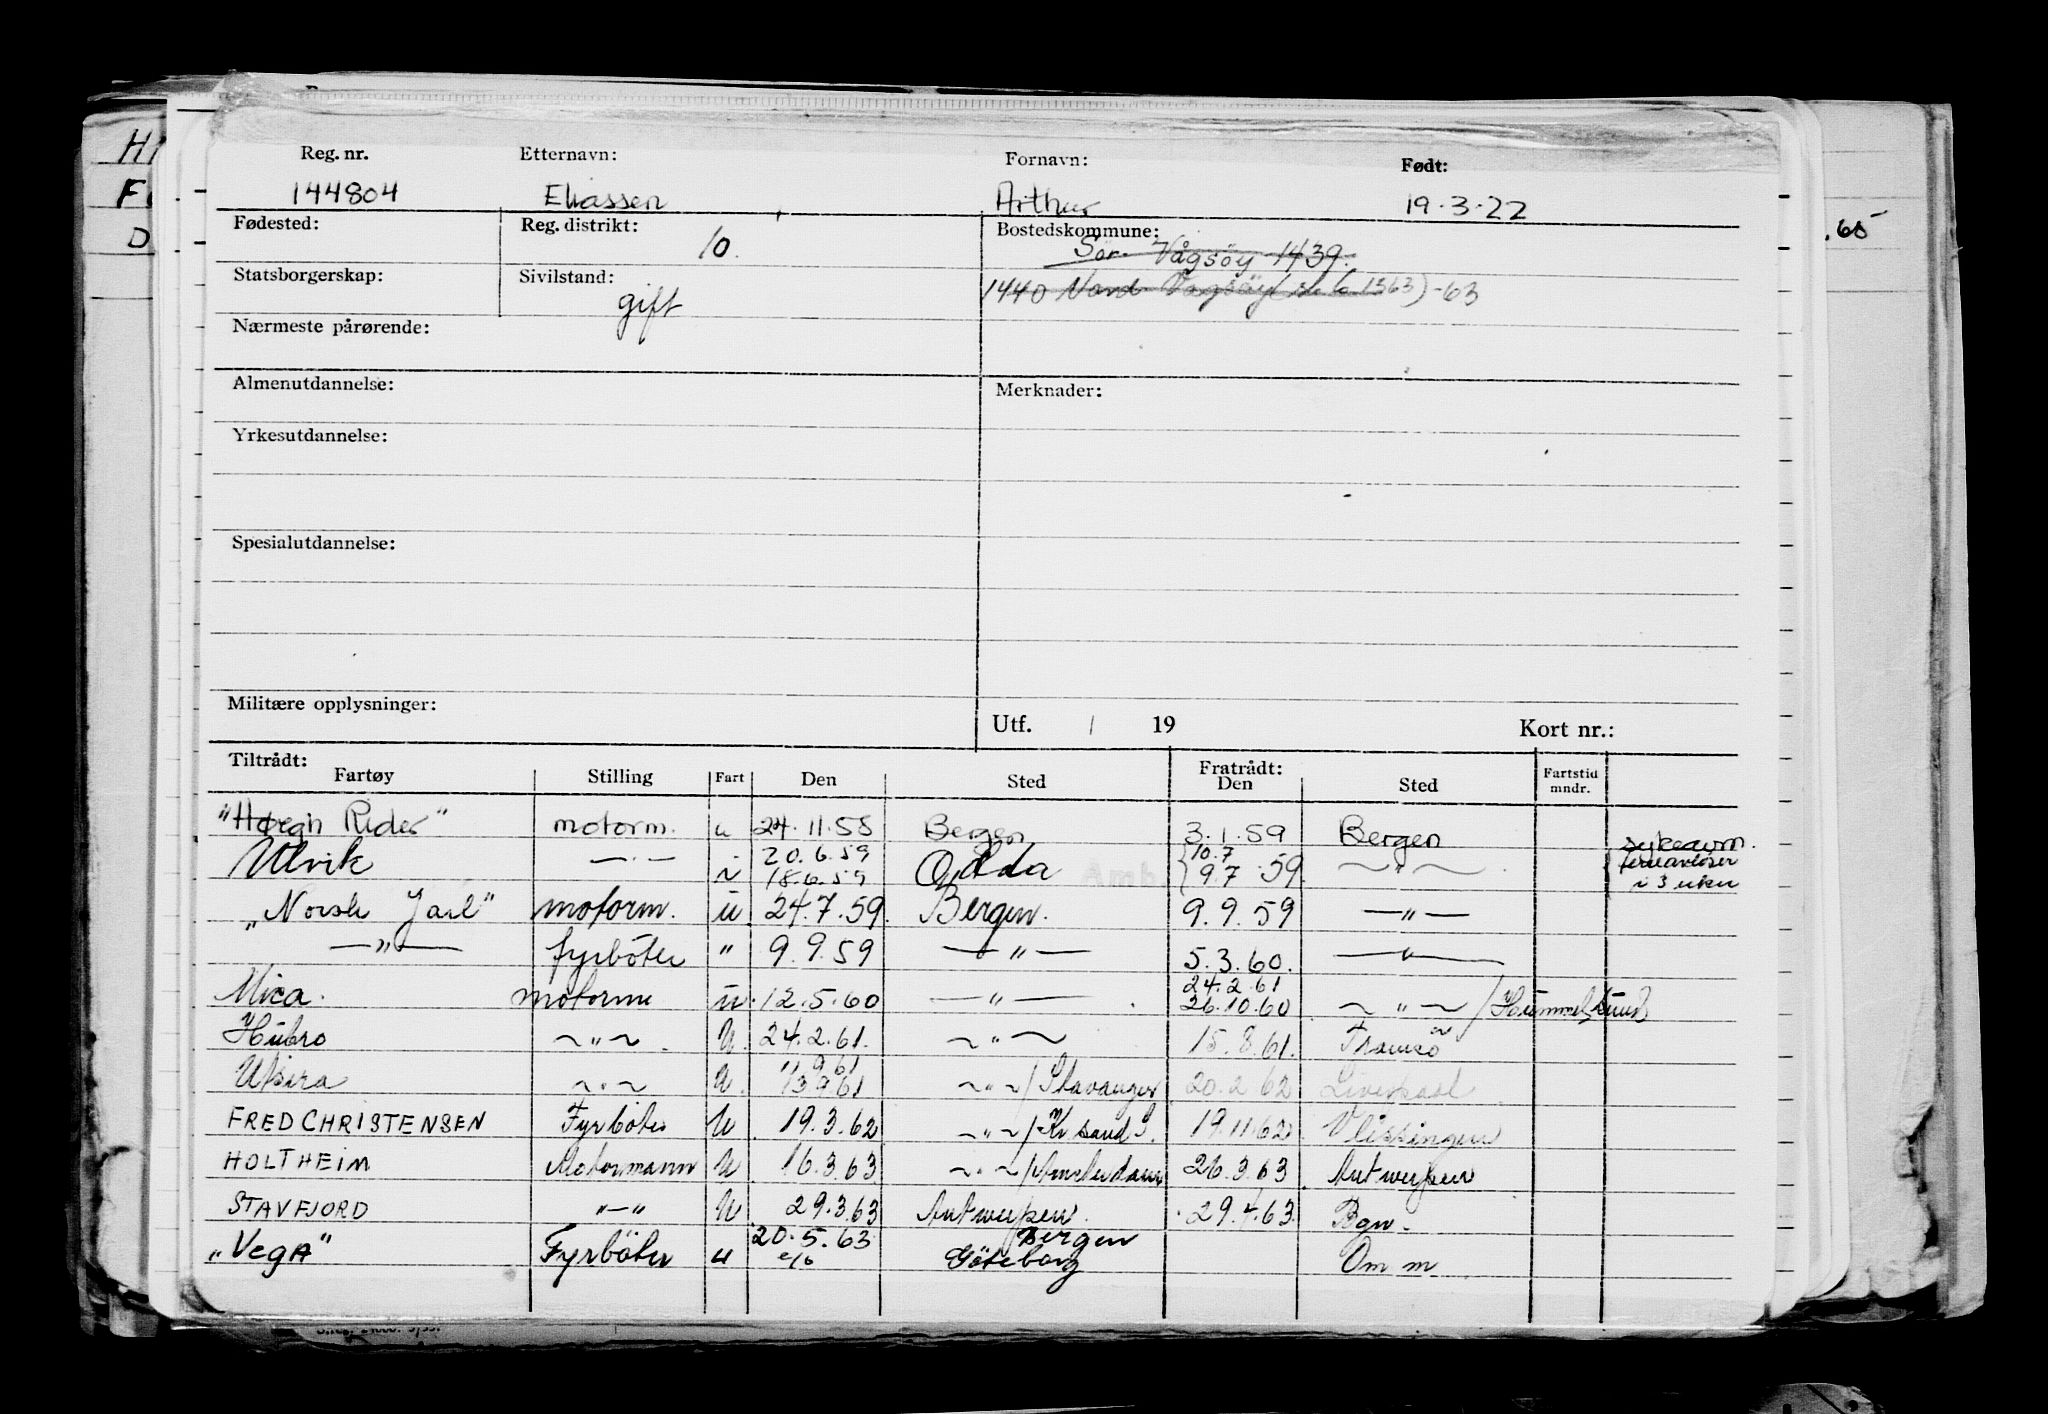 Reg. nr. Etternavn: Fornavn: Født:
144804 Eliassen Arthur 19.3.22
Fødested: Reg. distrikt: 10. Bostedskommune:
Sør-Vågsöy 1439.
Statsborgerskap: Sivilstand: gift
1440 Nord Vågsöy -63
Nærmeste pårørende:
Almenutdannelse: Merknader:
Yrkesutdannelse:
Spesialutdannelse:
Militære opplysninger: Utf. / 19 Kort nr.:
Tiltrådt: Fratrådt:
Fartøy Stilling Fart Den Sted Den Sted Fartstid mndr.
Rider" motorm. u 24.11.58 Bergen 3.1.59 Bergen
Ulvik — · — 20.6.59 18.6.59 Odda 10.7 9.7.59 ~ " ~ i 3 uker
"Norsk Jarl" motorm. u 24.7.59. Bergen. 9.9.59 — " —
— " — fyrböter " 9.9.59 — " — 5.3.60. — " —
Mica. motorm u. 12.5.60 — " — 24.2.61 26.10.60 ~ " ~
Hubro ~ " ~ U. 24.2.61. ~ " ~ 15.8.61. Tromsö
Utsira ~ " ~ U. 11961 13961 ~ " ~ / Stavanger 20.2.62 Liverpool
FRED CHRISTENSEN Fyrböter U 19.3.62 ~ " ~ / Kr sand S. 19.11.62 Vlissingen
HOLTHEIM Motormann U 16.3.63 ~ " ~ / Amsterdam 26.3.63 Antwerpen
STAVFJORD " — " U 29.3.63 Antwerpen. 29.4.63. Bgn.
"VegA" Fyrböter u 20.5.63 Bergen Göteborg Om m
. 65